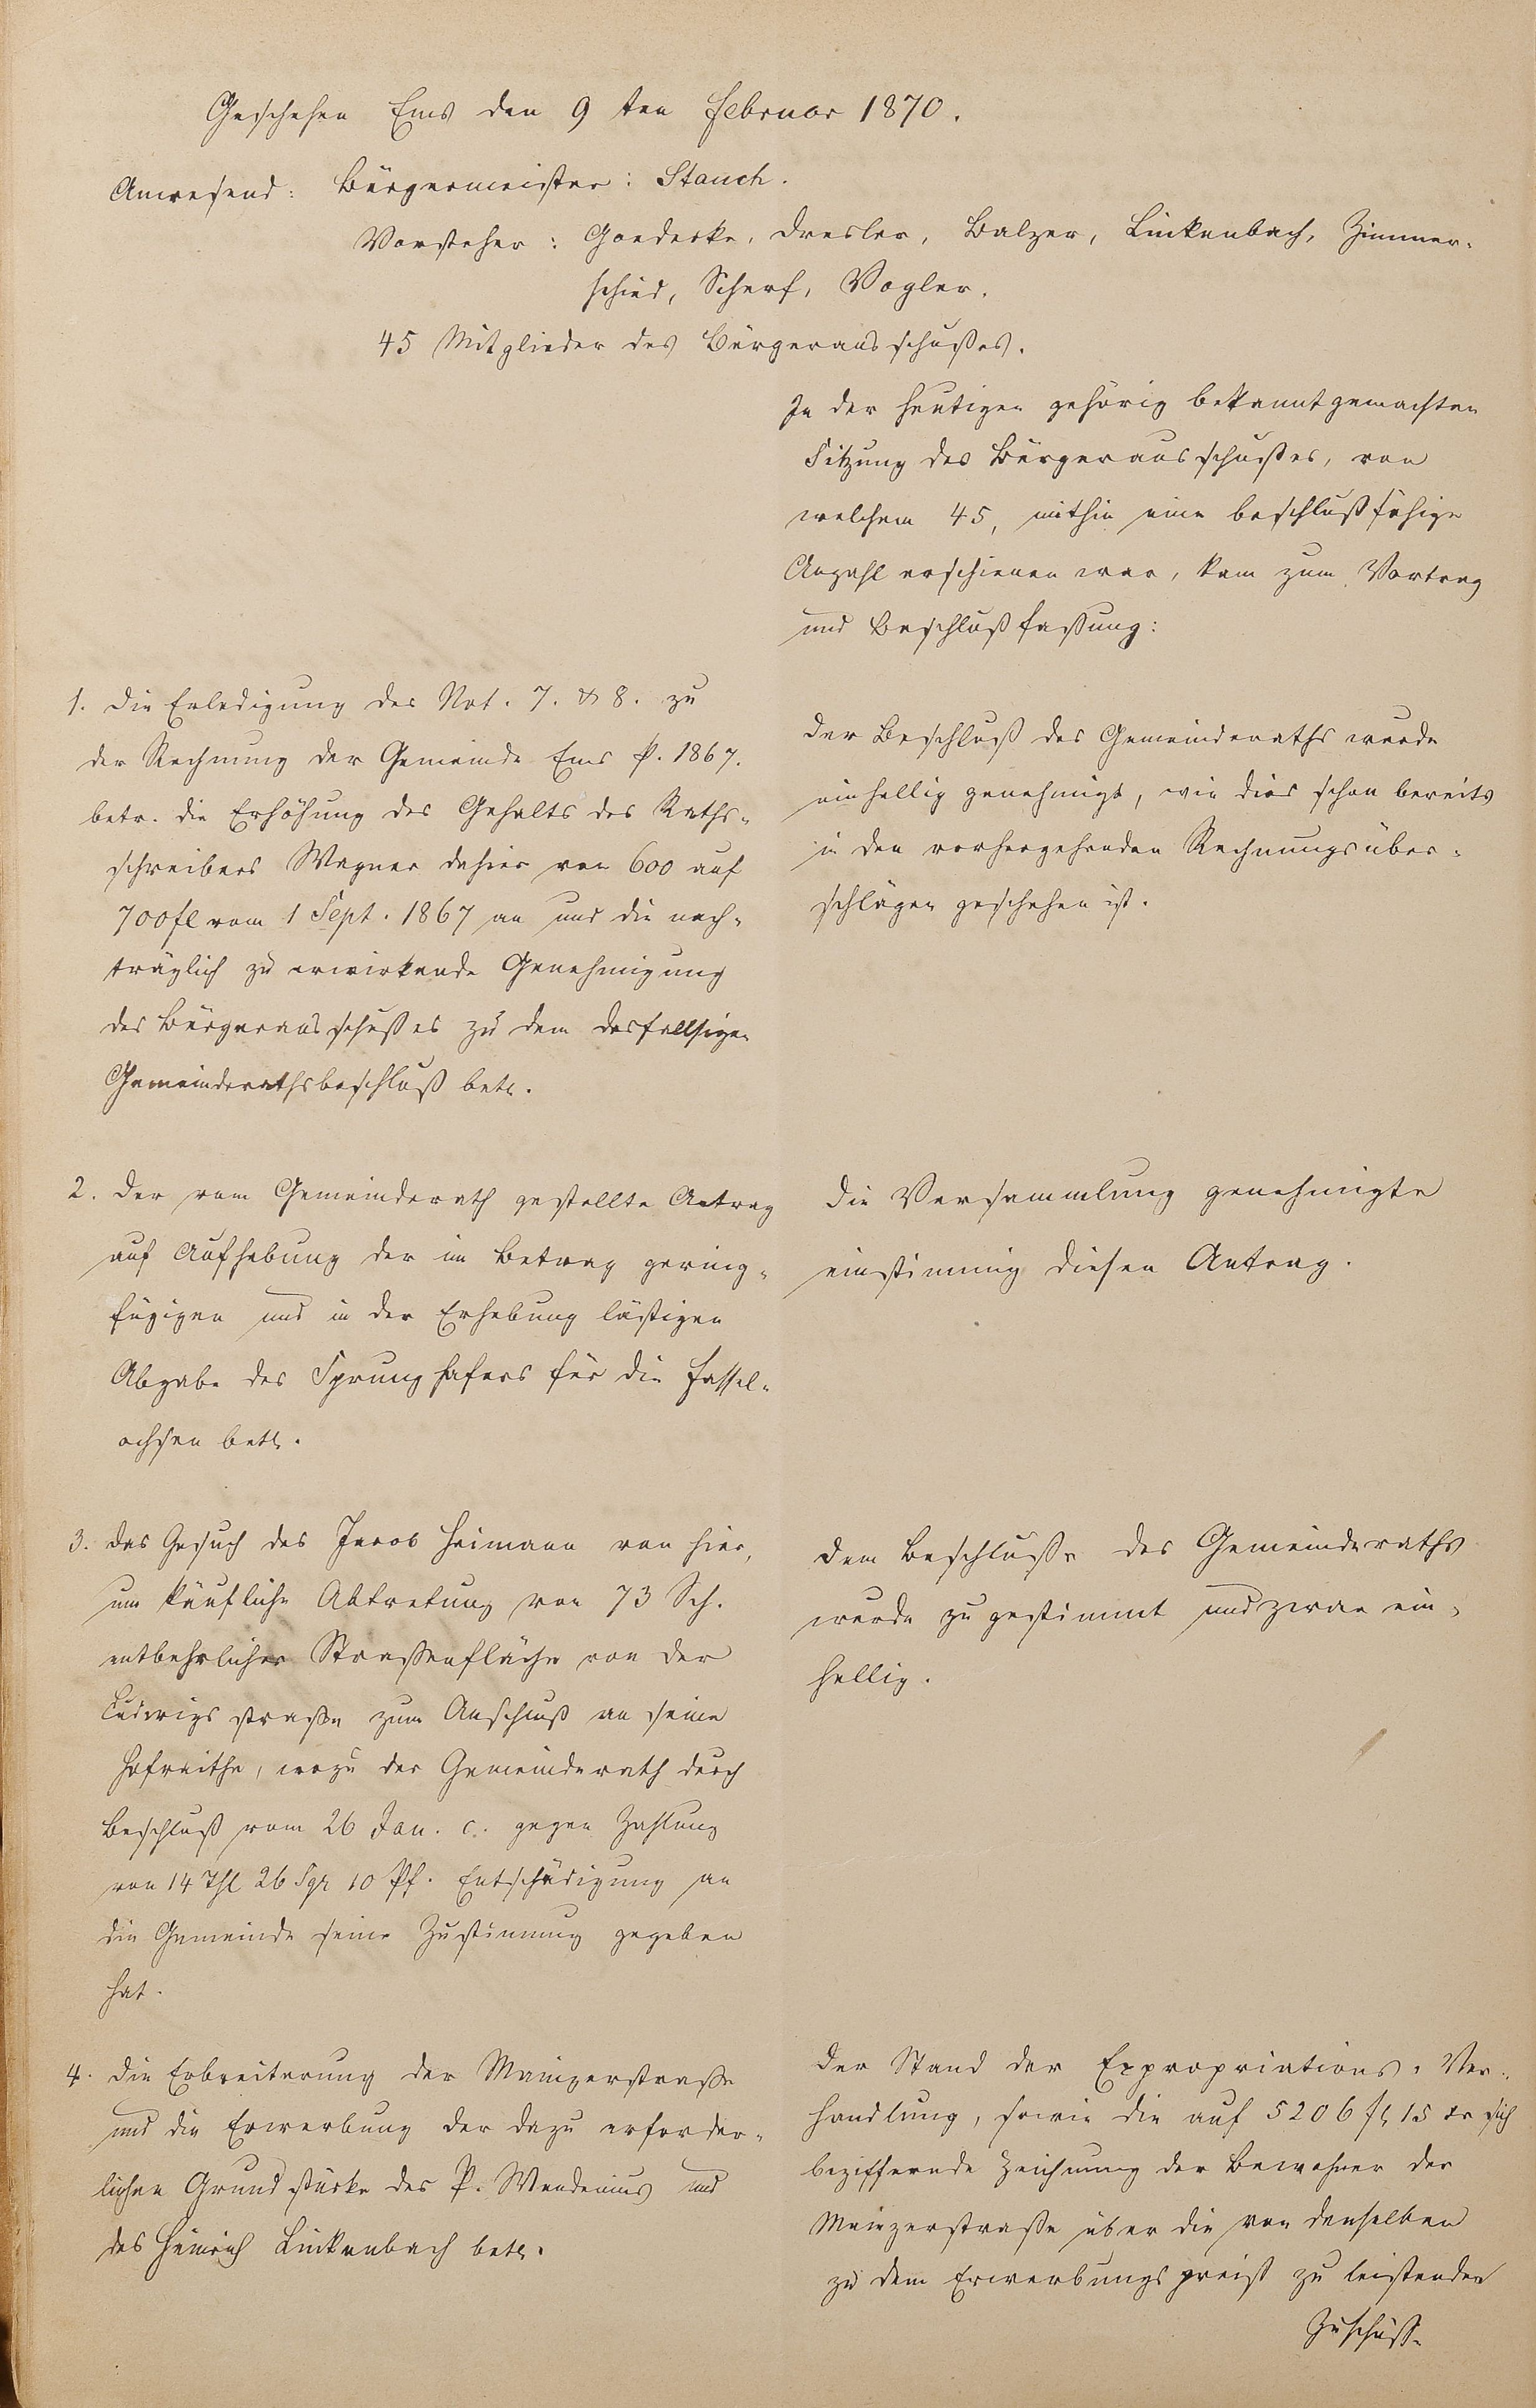 Geschehen Ems den 9ten Februar 1870.
Anwesend: Bürgermeister: Stauch.
Vorsteher: Goedecke, Dresler, Balzer, Linkenbach, Zimmer-
schied, Scherf, Vogler.
45 Mitglieder des Bürgerausschußes.
In der heutigen gehörig bekannt gemachten
Sitzung des Bürgerausschußes, von
welchem 45, mithin eine beschlußfähige
Anzahl erschienen war, kam zum Vortrag
und Beschlußfaßung:
1. Die Erledigung der Not. 7. & 8. zu
der Rechnung der Gemeinde Ems p. 1867.
betr. die Erhöhung des Gehalts des Raths-
schreibers Wagner dahier von 600 auf
700 fl vom 1 Sept. 1867 an und die nach-
träglich zu erwirkende Genehmigung
des Bürgerausschußes zu dem desfallsigen
Gemeinderathsbeschluß betr.
Der Beschluß des Gemeinderaths wurde
einhellig genehmigt, wie dies schon bereits
in den vorhergehenden Rechnungsüber-
schlägen geschehen ist.
2. Der vom Gemeinderath gestellte Antrag
auf Aufhebung der im Betrag gering-
fügigen und in der Erhebung lästigen
Abgabe des Sprunghafers für die Fassel-
ochsen betr.
Die Versammlung genehmigte
einstimmig diesen Antrag.
3. Das Gesuch des Jacob Heimann von hier,
um käufliche Abtretung von 73 Sch.
entbehrlicher Straßenfläche von der
Ludwigsstraße zum Anschluß an seine
Hofreithe, wozu der Gemeinderath durch
Beschluß vom 26 Jan. c. gegen Zahlung
von 14 Thl 26 Sgr 10 Pf. Entschädigung an
die Gemeinde seine Zustimmung gegeben
hat.
Dem Beschluße des Gemeinderaths
wurde zugestimmt und zwar ein-
hellig.
4. Die Erbreiterung der Mainzerstraße
und die Erwerbung der dazu erforder-
lichen Grundstücke des P. Wendenius und
des Heinrich Linkenbach betr.
Der Stand der Expropriations-Ver-
handlung, sowie die auf 5206 fl 15 xr sich
beziffernde Zeichnung der Bewohner der
Mainzerstraße über die von denselben
zu dem Erwerbungspreiß zu leistenden
Zuschüße